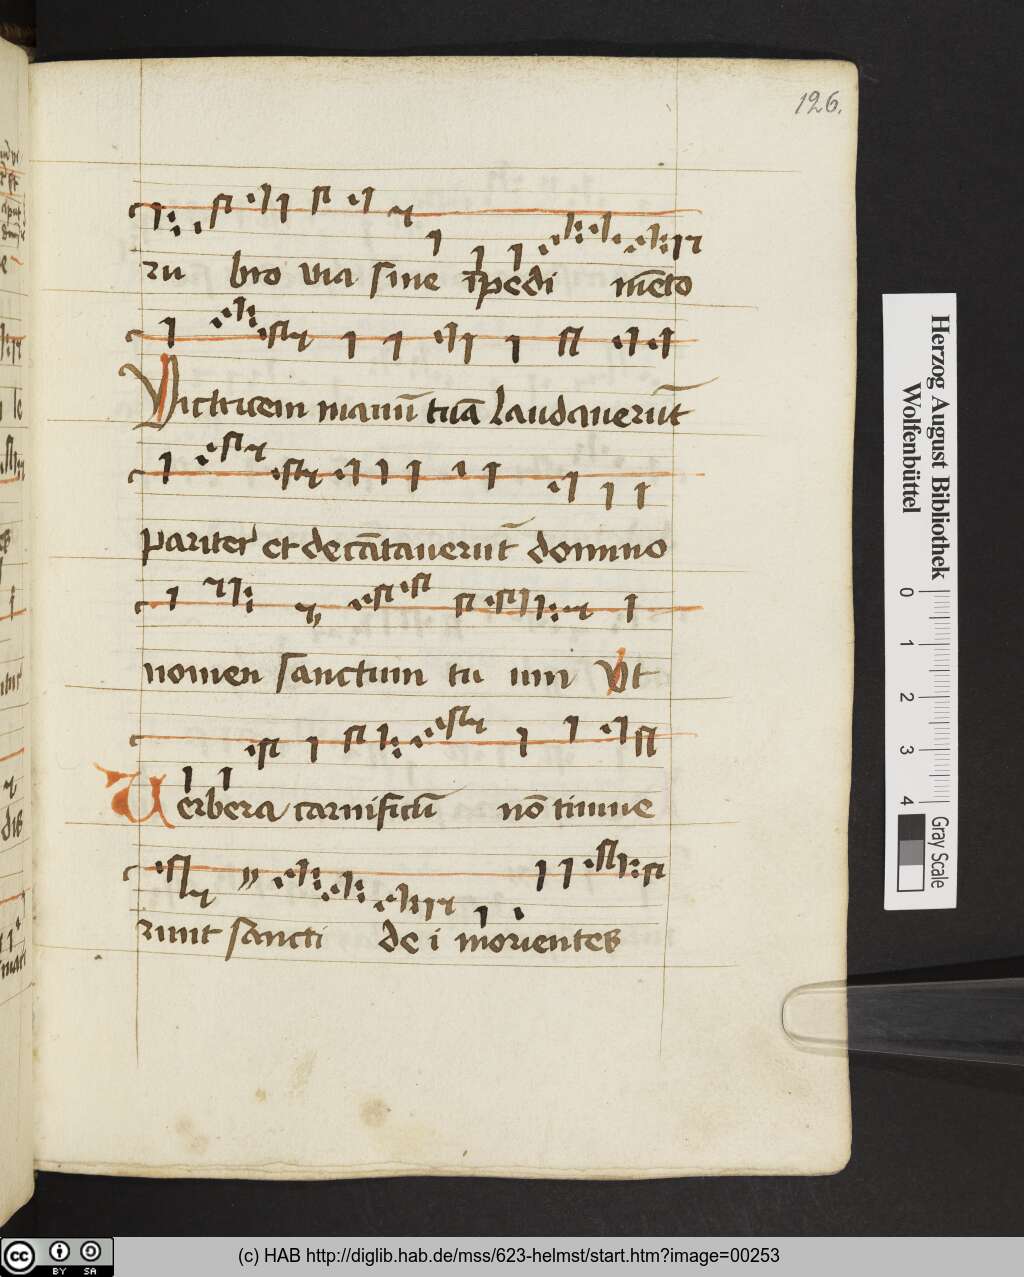 126.
ru bro via sine īpedi mēto
Victricem manū tuā laudauerūt
pariter et decātauerūt domino
nomen sanctum tu um Vt
Uerbera carnificū nō timue
runt sancti de i morientes
Herzog August Bibliothek
Wolfenbüttel
0 1 2 3 4 Gray Scale
cc BY SA
(c) HAB http://diglib.hab.de/mss/623-helmst/start.htm?image=00253